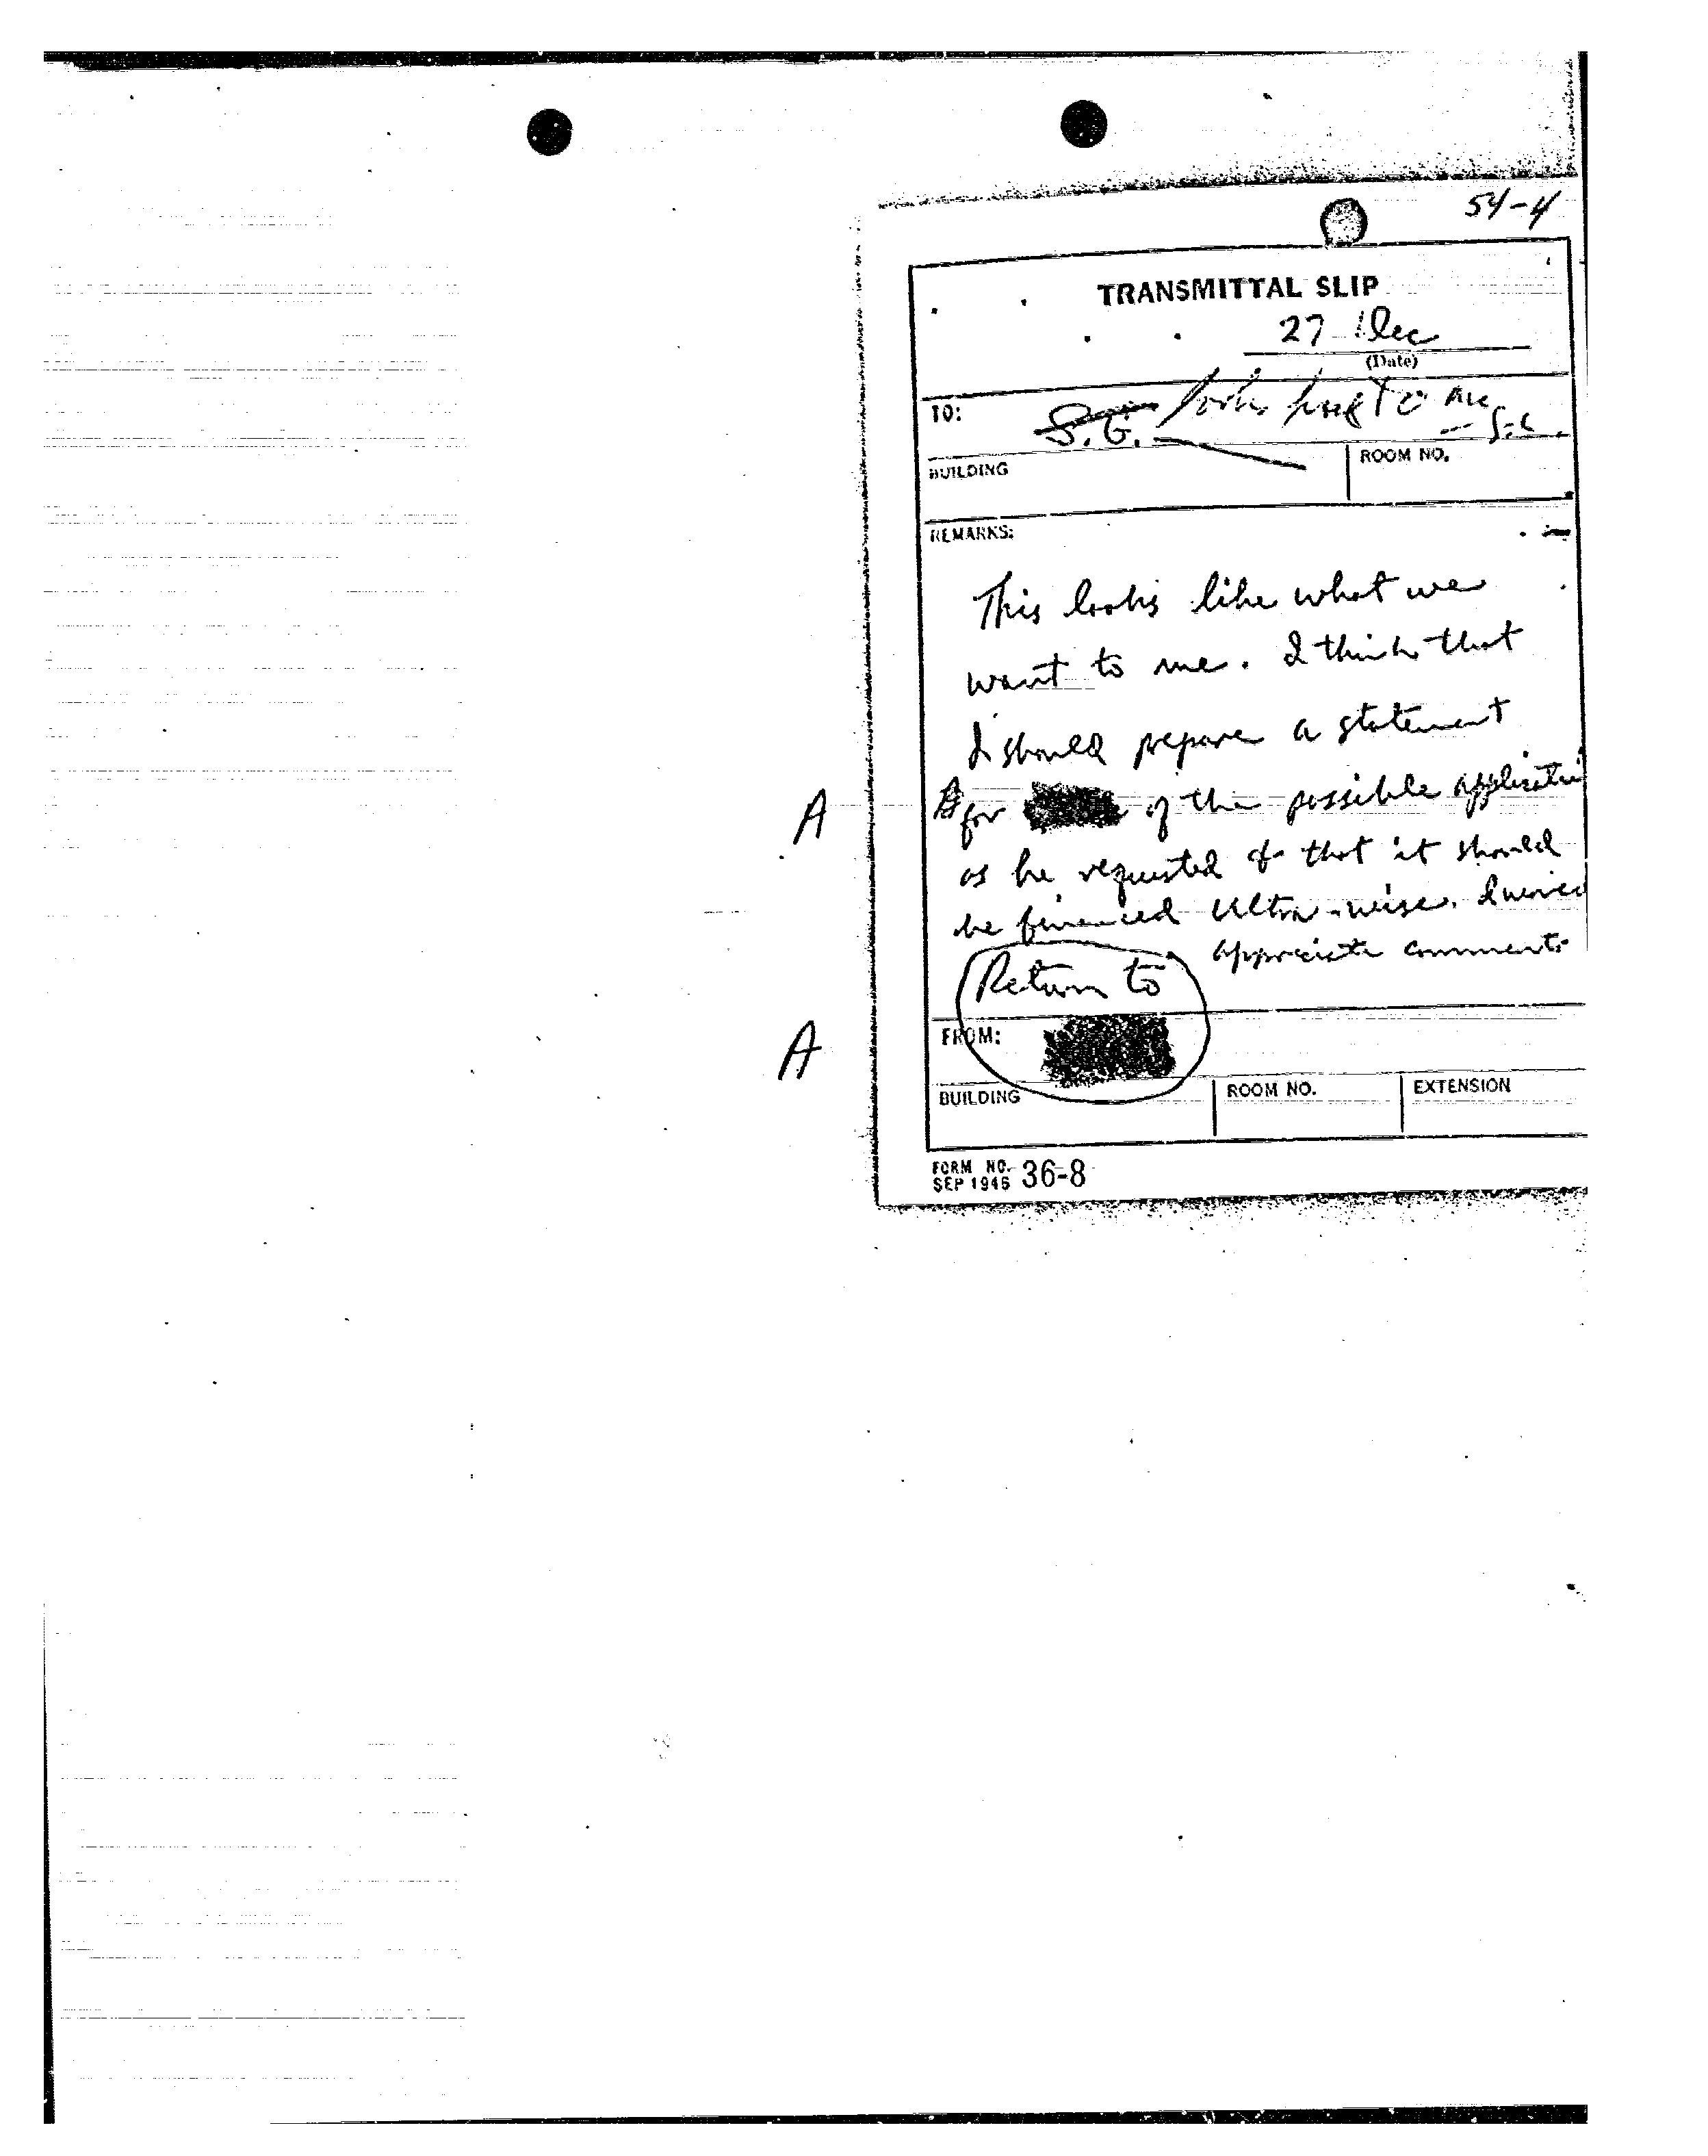 54-4
TRANSMITTAL SLIP
27 Dec
(Date)
TO:
S.G. looks good to me
BUILDING
ROOM NO.
REMARKS:
This looks like what we
want to me. I think that
I should prepare a statement
A
for of the possible applicatio
as he requested & that it should
be financed Ultra-wise.
appreciate comments
Return to
A
FROM:
BUILDING
ROOM NO.
EXTENSION
FORM NO.
SEP 1946 36-8